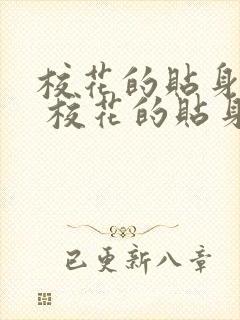 校花的贴身
校花的贴身
已更新八章